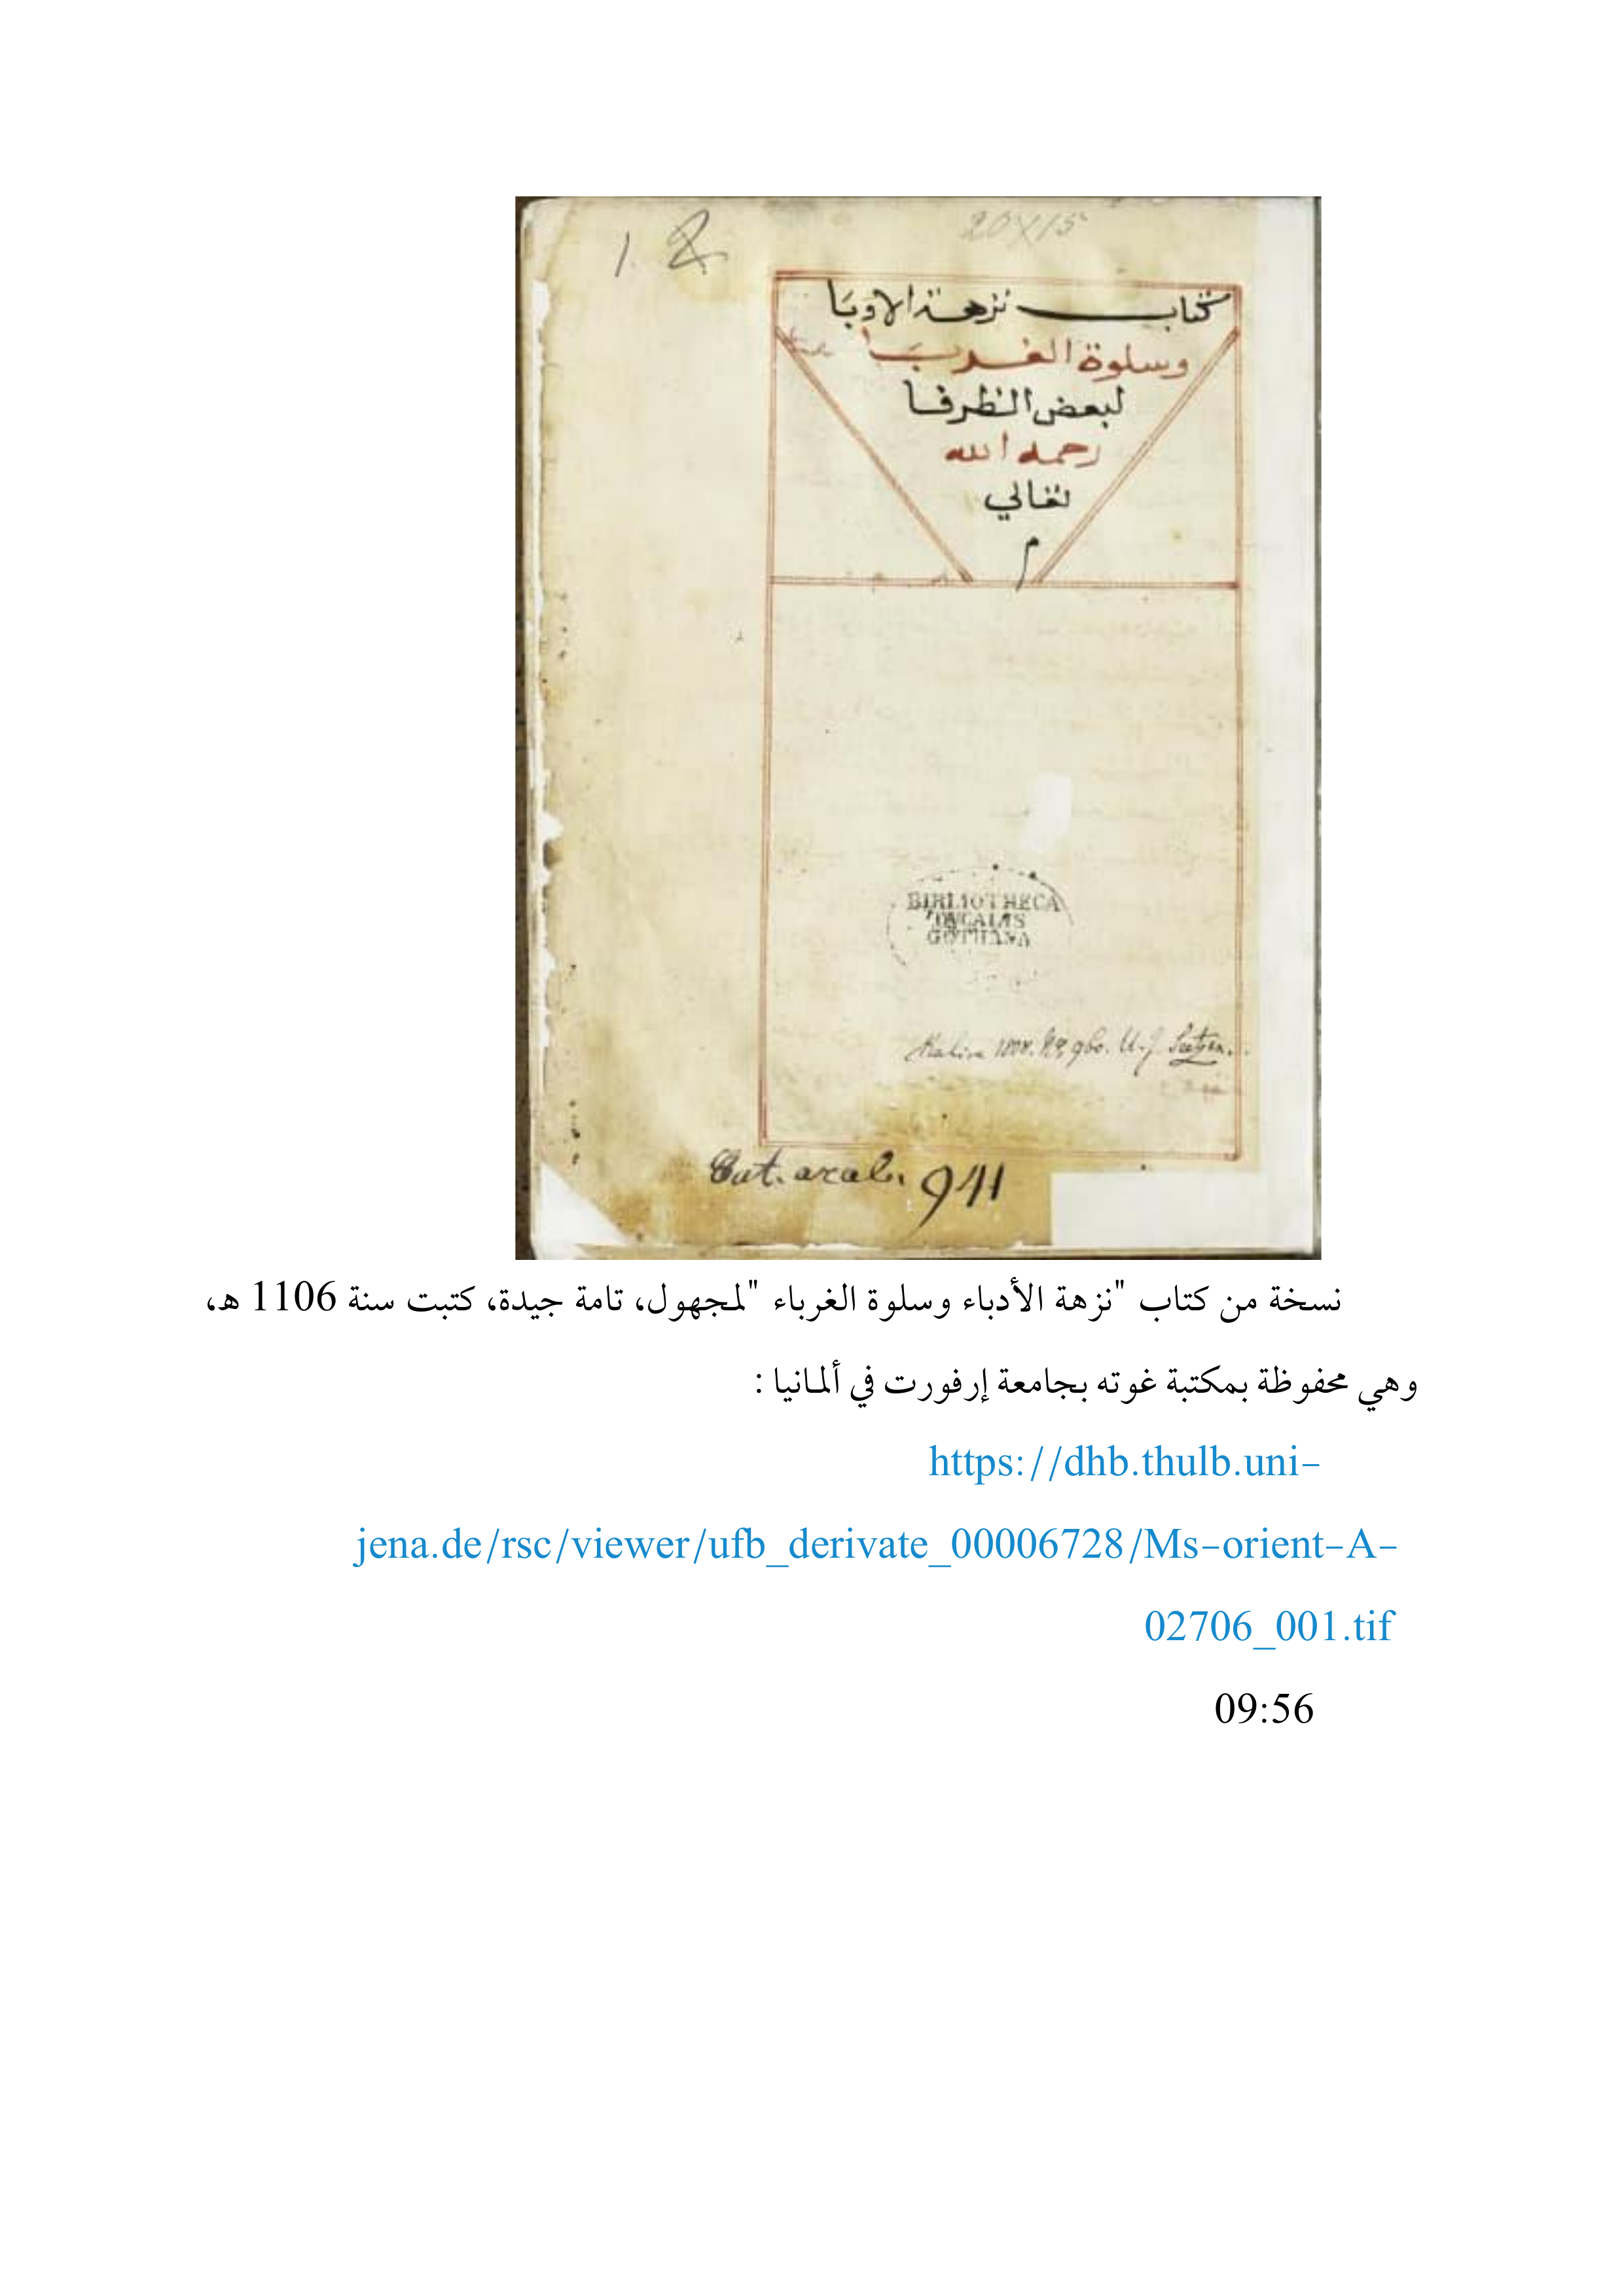 1. 2
20X15
كتاب نزهة الادبا
وسلوة الغربا
لبعض الظرفا
رحمه الله
تعالي
م
BIBLIOTHECA
DVCALIS
GOTHANA
Kahira 1808. No. 960. U. J. Seetzen.
Cat. arab. 941
نسخة من كتاب "نزهة الأدباء وسلوة الغرباء "لمجهول، تامة جيدة، كتبت سنة 1106 هـ،
وهي محفوظة بمكتبة غوته بجامعة إرفورت في ألمانيا :
https://dhb.thulb.uni-
jena.de/rsc/viewer/ufb_derivate_00006728/Ms-orient-A-
02706_001.tif
09:56